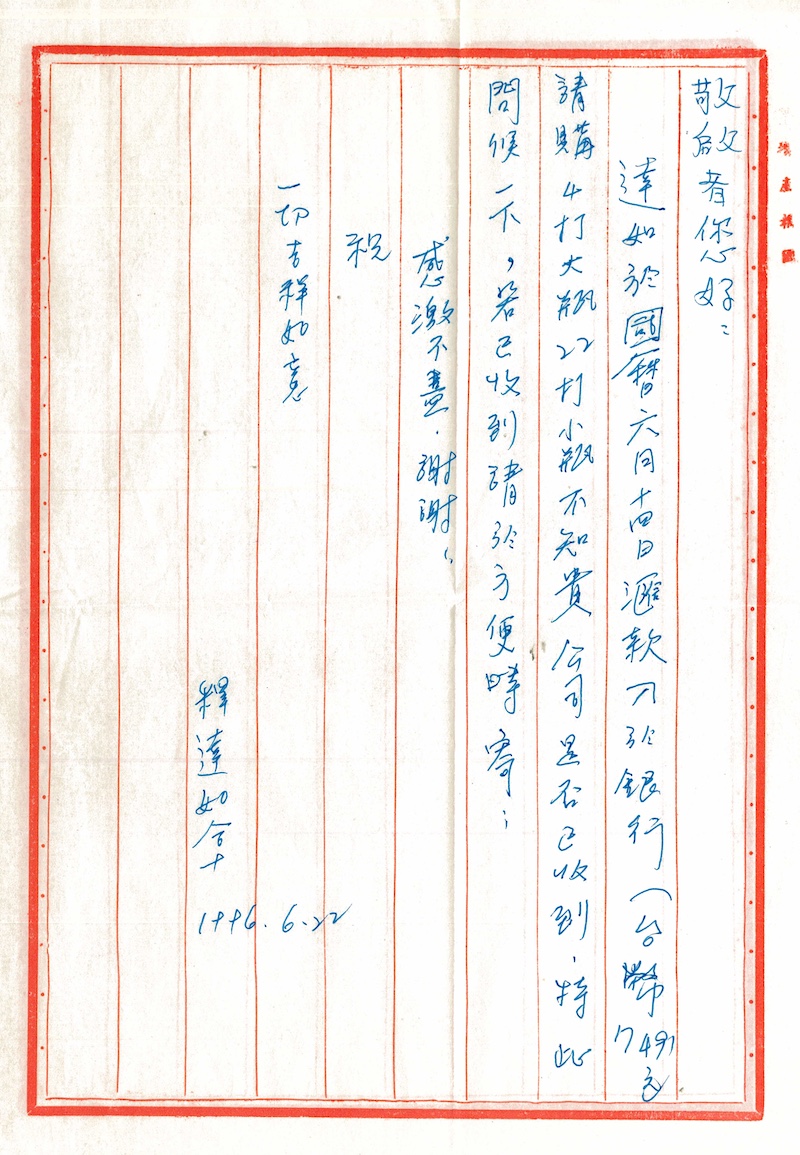 敬啟者您好：
達如於國曆六月十四日匯款刀於銀行（台幣7491元
請購4打大瓶22打小瓶不知貴公司是否已收到．特此
問候一下，若已收到請於方便時寄；
感激不盡．謝謝，
祝
一切吉祥如意
釋達如合十
1996.6.22